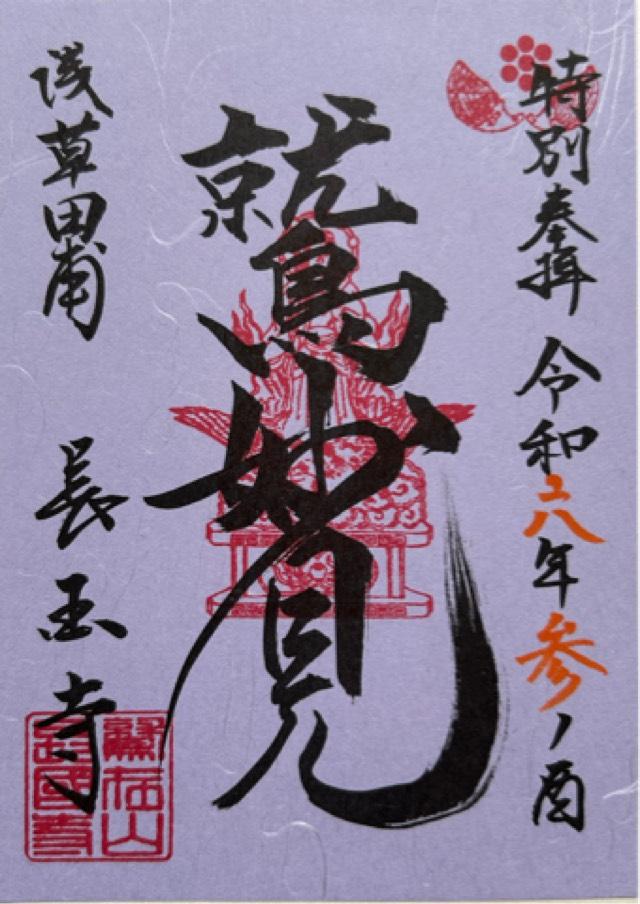 特別奉拝 令和六年参ノ酉
鷲妙見
浅草田甫 長国寺
鷲在山
長國寺